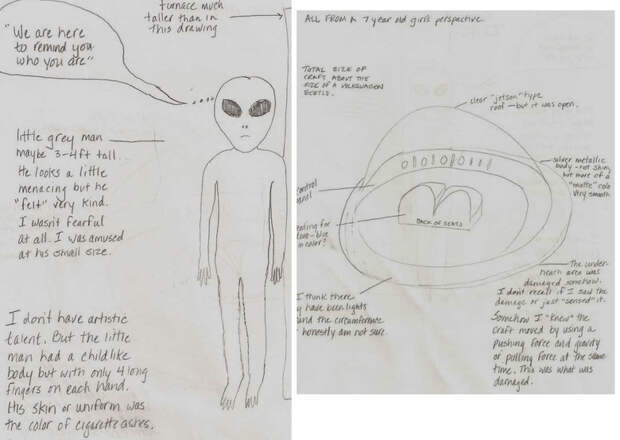 furnace much
taller than in
this drawing
"We are here
to remind you
who you are"
little grey man
maybe 3-4ft tall.
He looks a little
menacing but he
"felt" very kind.
I wasn't fearful
at all. I was amused
at his small size.
I don't have artistic
talent. But the little
man had a childlike
body but with only 4 long
fingers on each hand.
His skin or uniform was
the color of cigarette ashes.
ALL FROM A 7 year old girl's perspective
TOTAL SIZE OF
CRAFT ABOUT THE
SIZE OF A VOLKSWAGEN
BEETLE.
clear "jetson" type
roof - but it was open.
silver metallic
body - not shiny
but more of a
"matte" color
very smooth
BACK OF SEATS
in color?
I think there
have been lights
the circumference
honestly am not sure.
The under-
neath area was
damaged somehow.
I don't recall if I saw the
damage or just "sensed" it.
Somehow I "knew" the
craft moved by using a
pushing force and gravity
or pulling force at the same
time. This was what was
damaged.